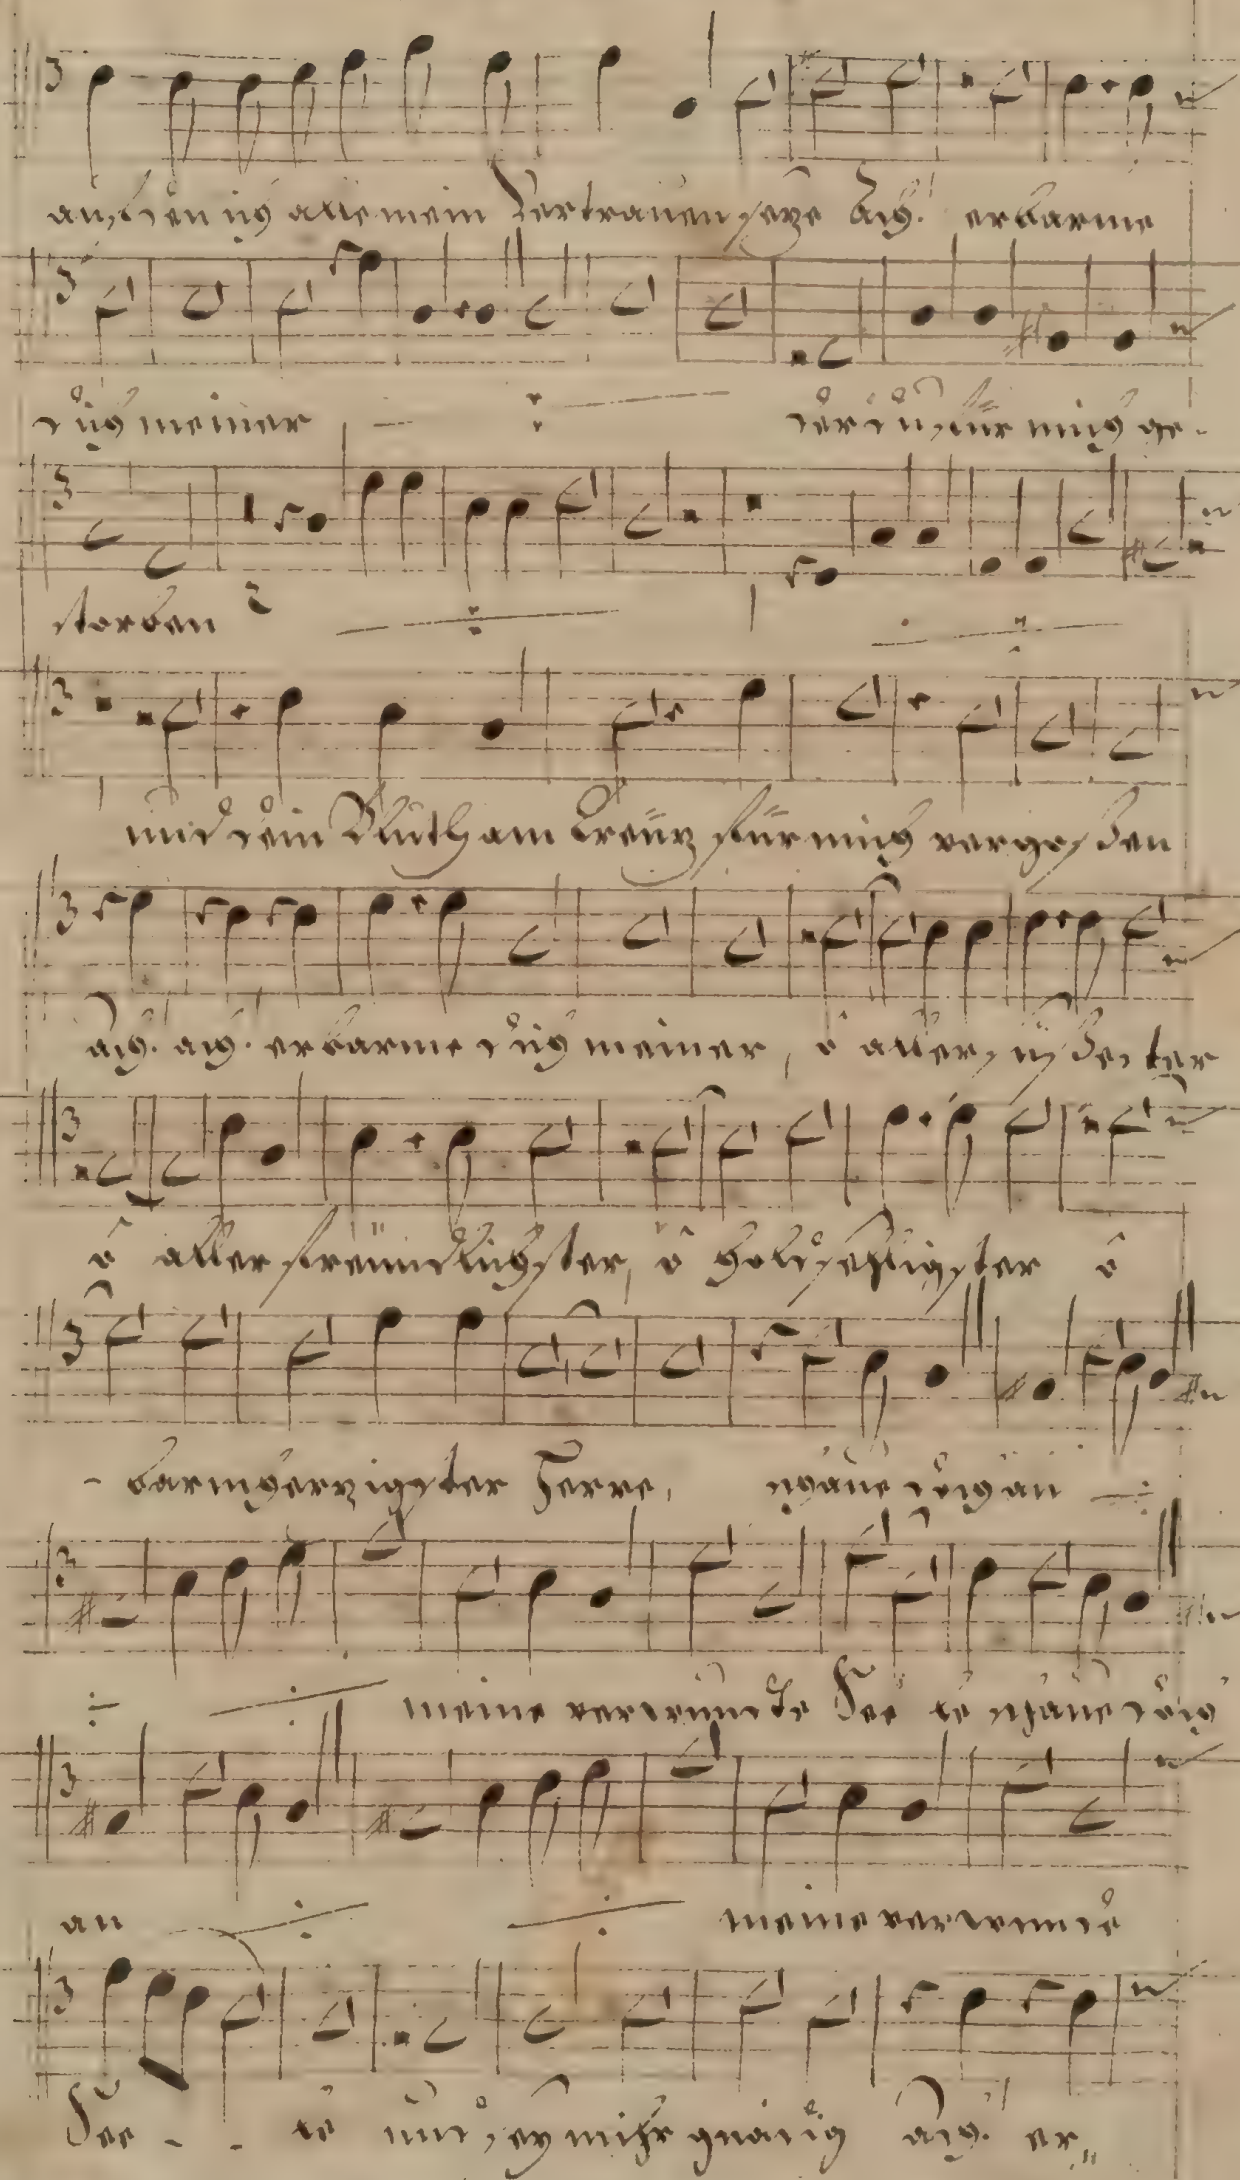 auf den ich alle mein Vertrauen seze Ach! erbarme
dich meiner ÷ der du für mich ge-
storben ÷ ÷
und dein Bluth am Creüz für mich vergossen
ach! ach! erbarme dich meiner, ô allersüssester
ô aller freündlichster, ô holdseeligster ô
- barmherzigster Herre, schaue doch an ÷
÷ ÷ meine verwundte See le schaue doch
an ÷ ÷ meine verwunde
See - - le und sey mihr gnädig ach! er„